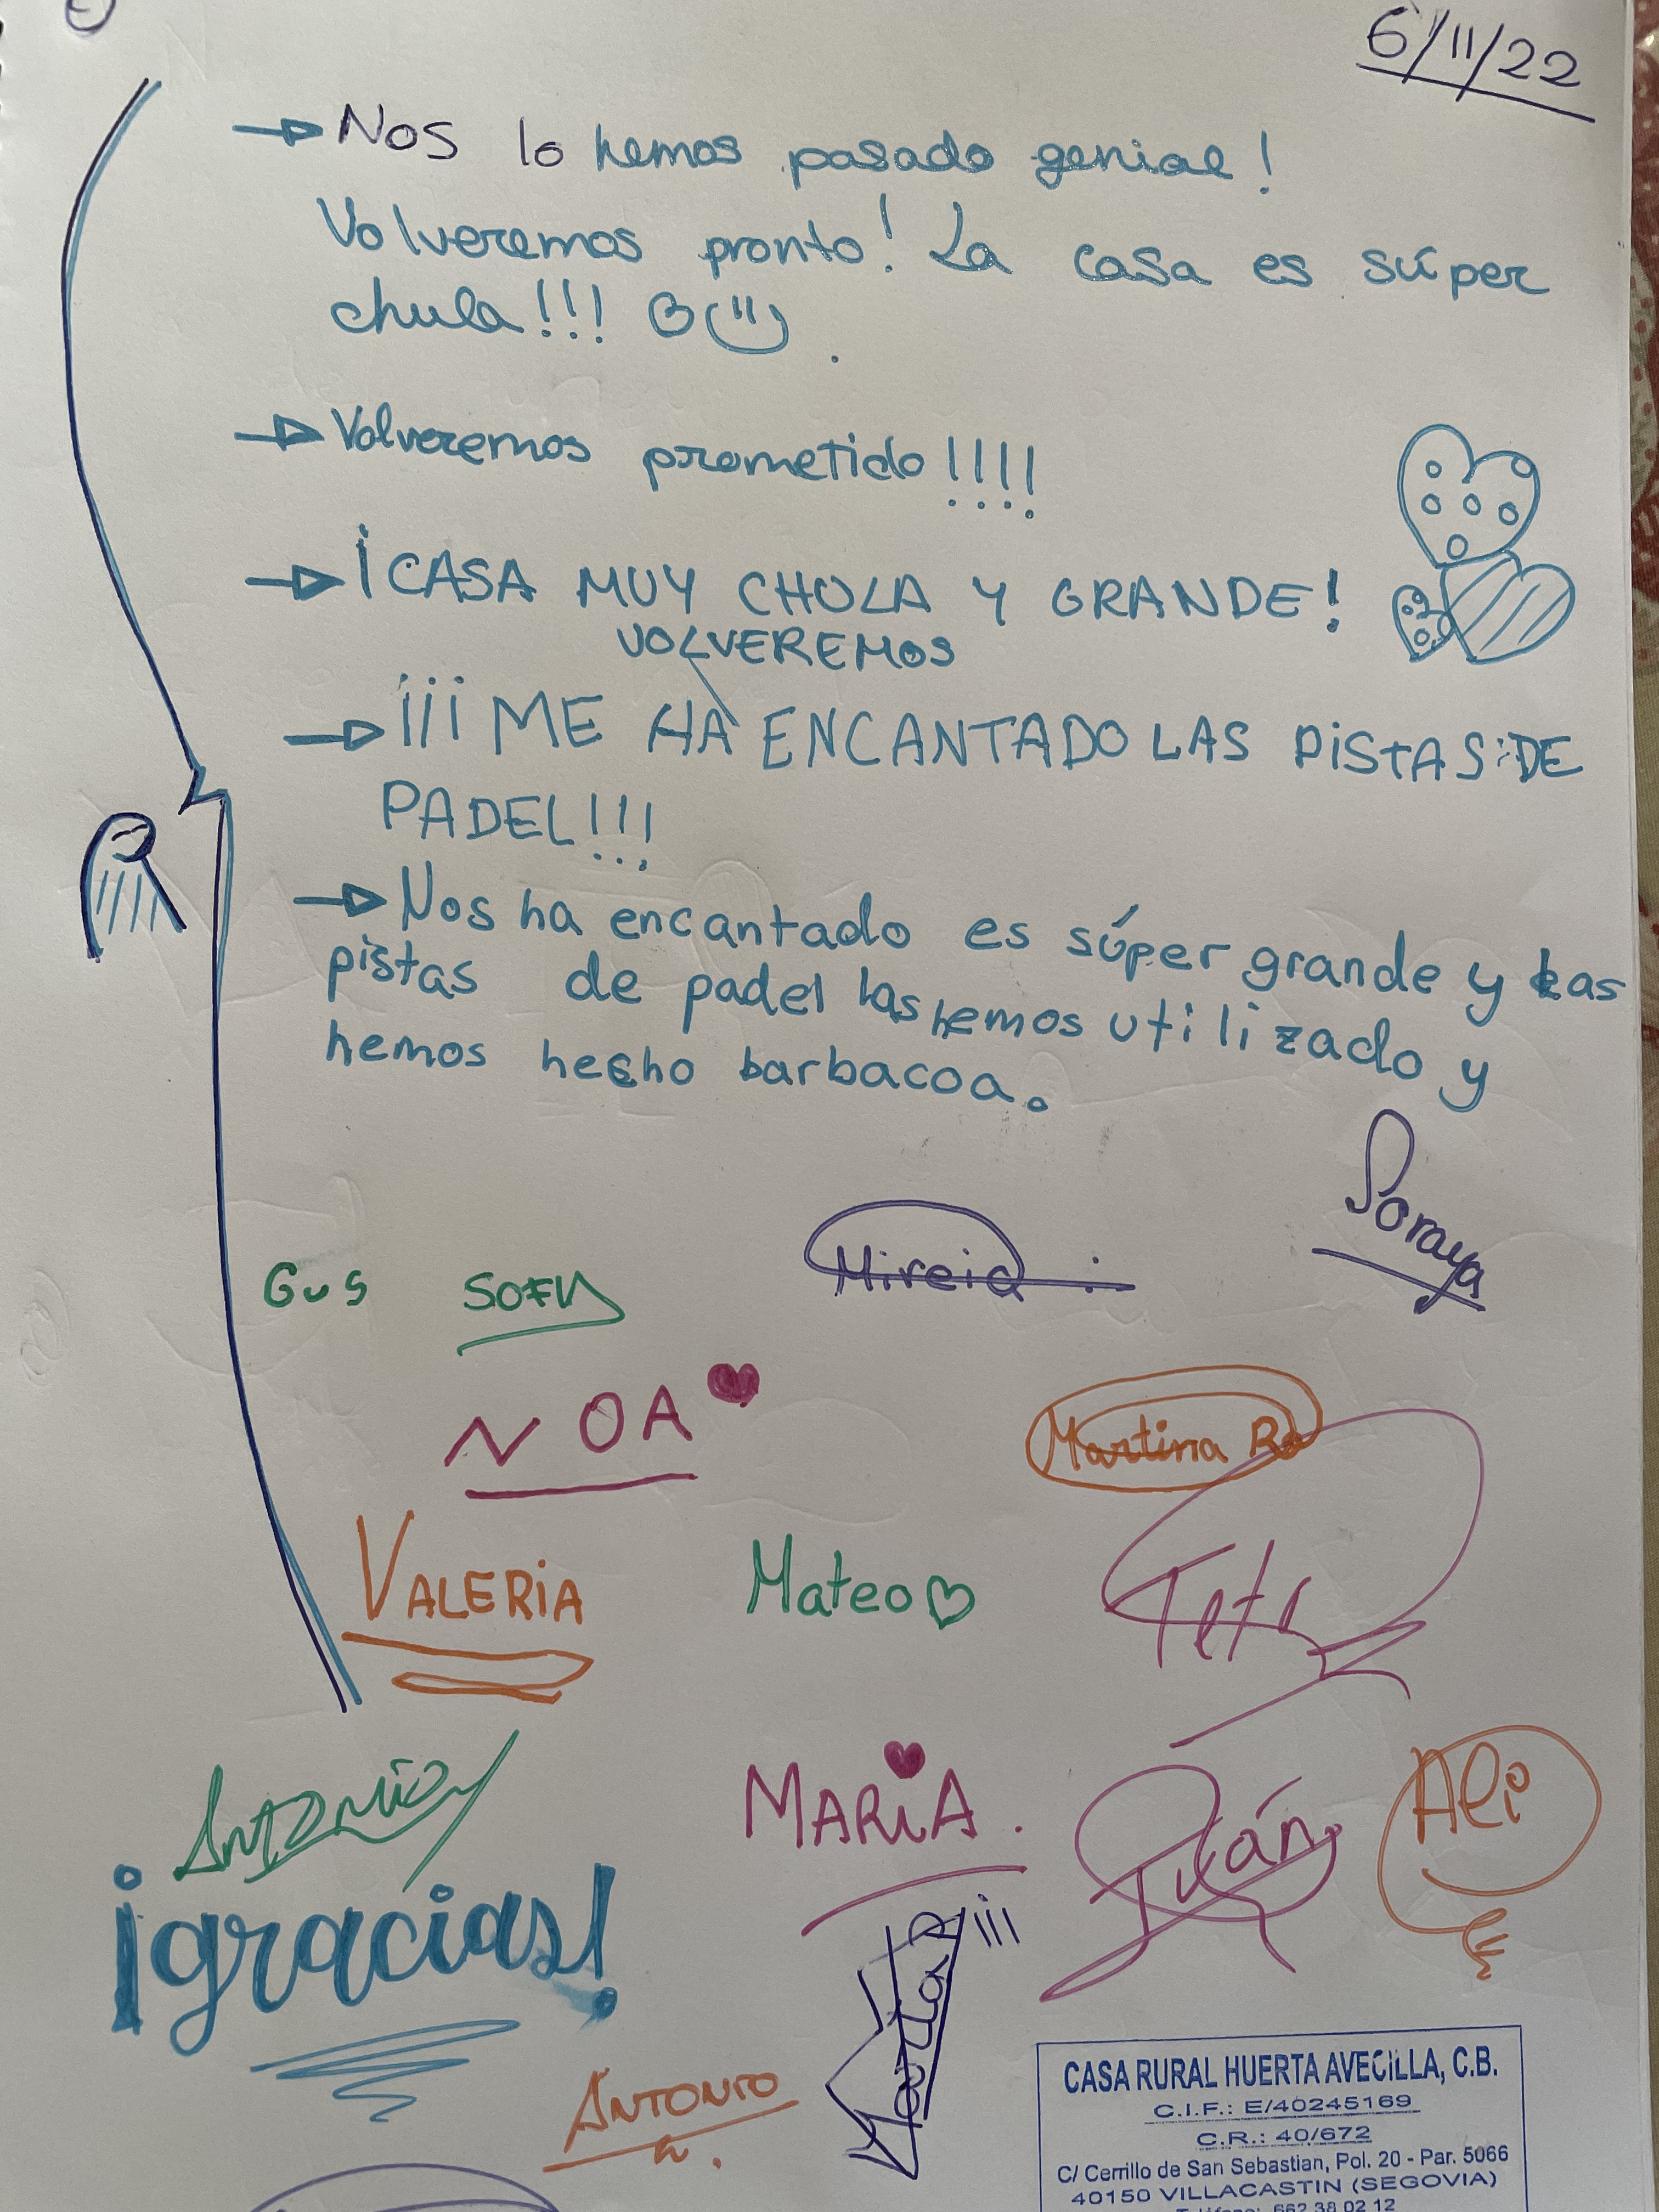 6/11/22
Nos lo hemos pasado genial!
Volveremos pronto! La casa es súper
chula!!!
Volveremos prometido!!!!
¡CASA MUY CHULA Y GRANDE!
VOLVEREMOS
¡¡¡ME HA ENCANTADO LAS PiSTAS DE
PADEL!!!
Nos ha encantado es súper grande y las
pistas de padel las hemos utilizado y
hemos hecho barbacoa.
Soraya
Gus SOFY Mireia
NOA Martina
VALERiA Mateo
ANTONIO MARiA. Iván Ali
¡gracias!
ANTONIO
CASA RURAL HUERTA AVECILLA, C.B.
C.I.F.: E/40245169
C.R.: 40/672
C/ Cerrillo de San Sebastian, Pol. 20 - Par. 5066
40150 VILLACASTIN (SEGOVIA)
Teléfono: 662 38 02 12